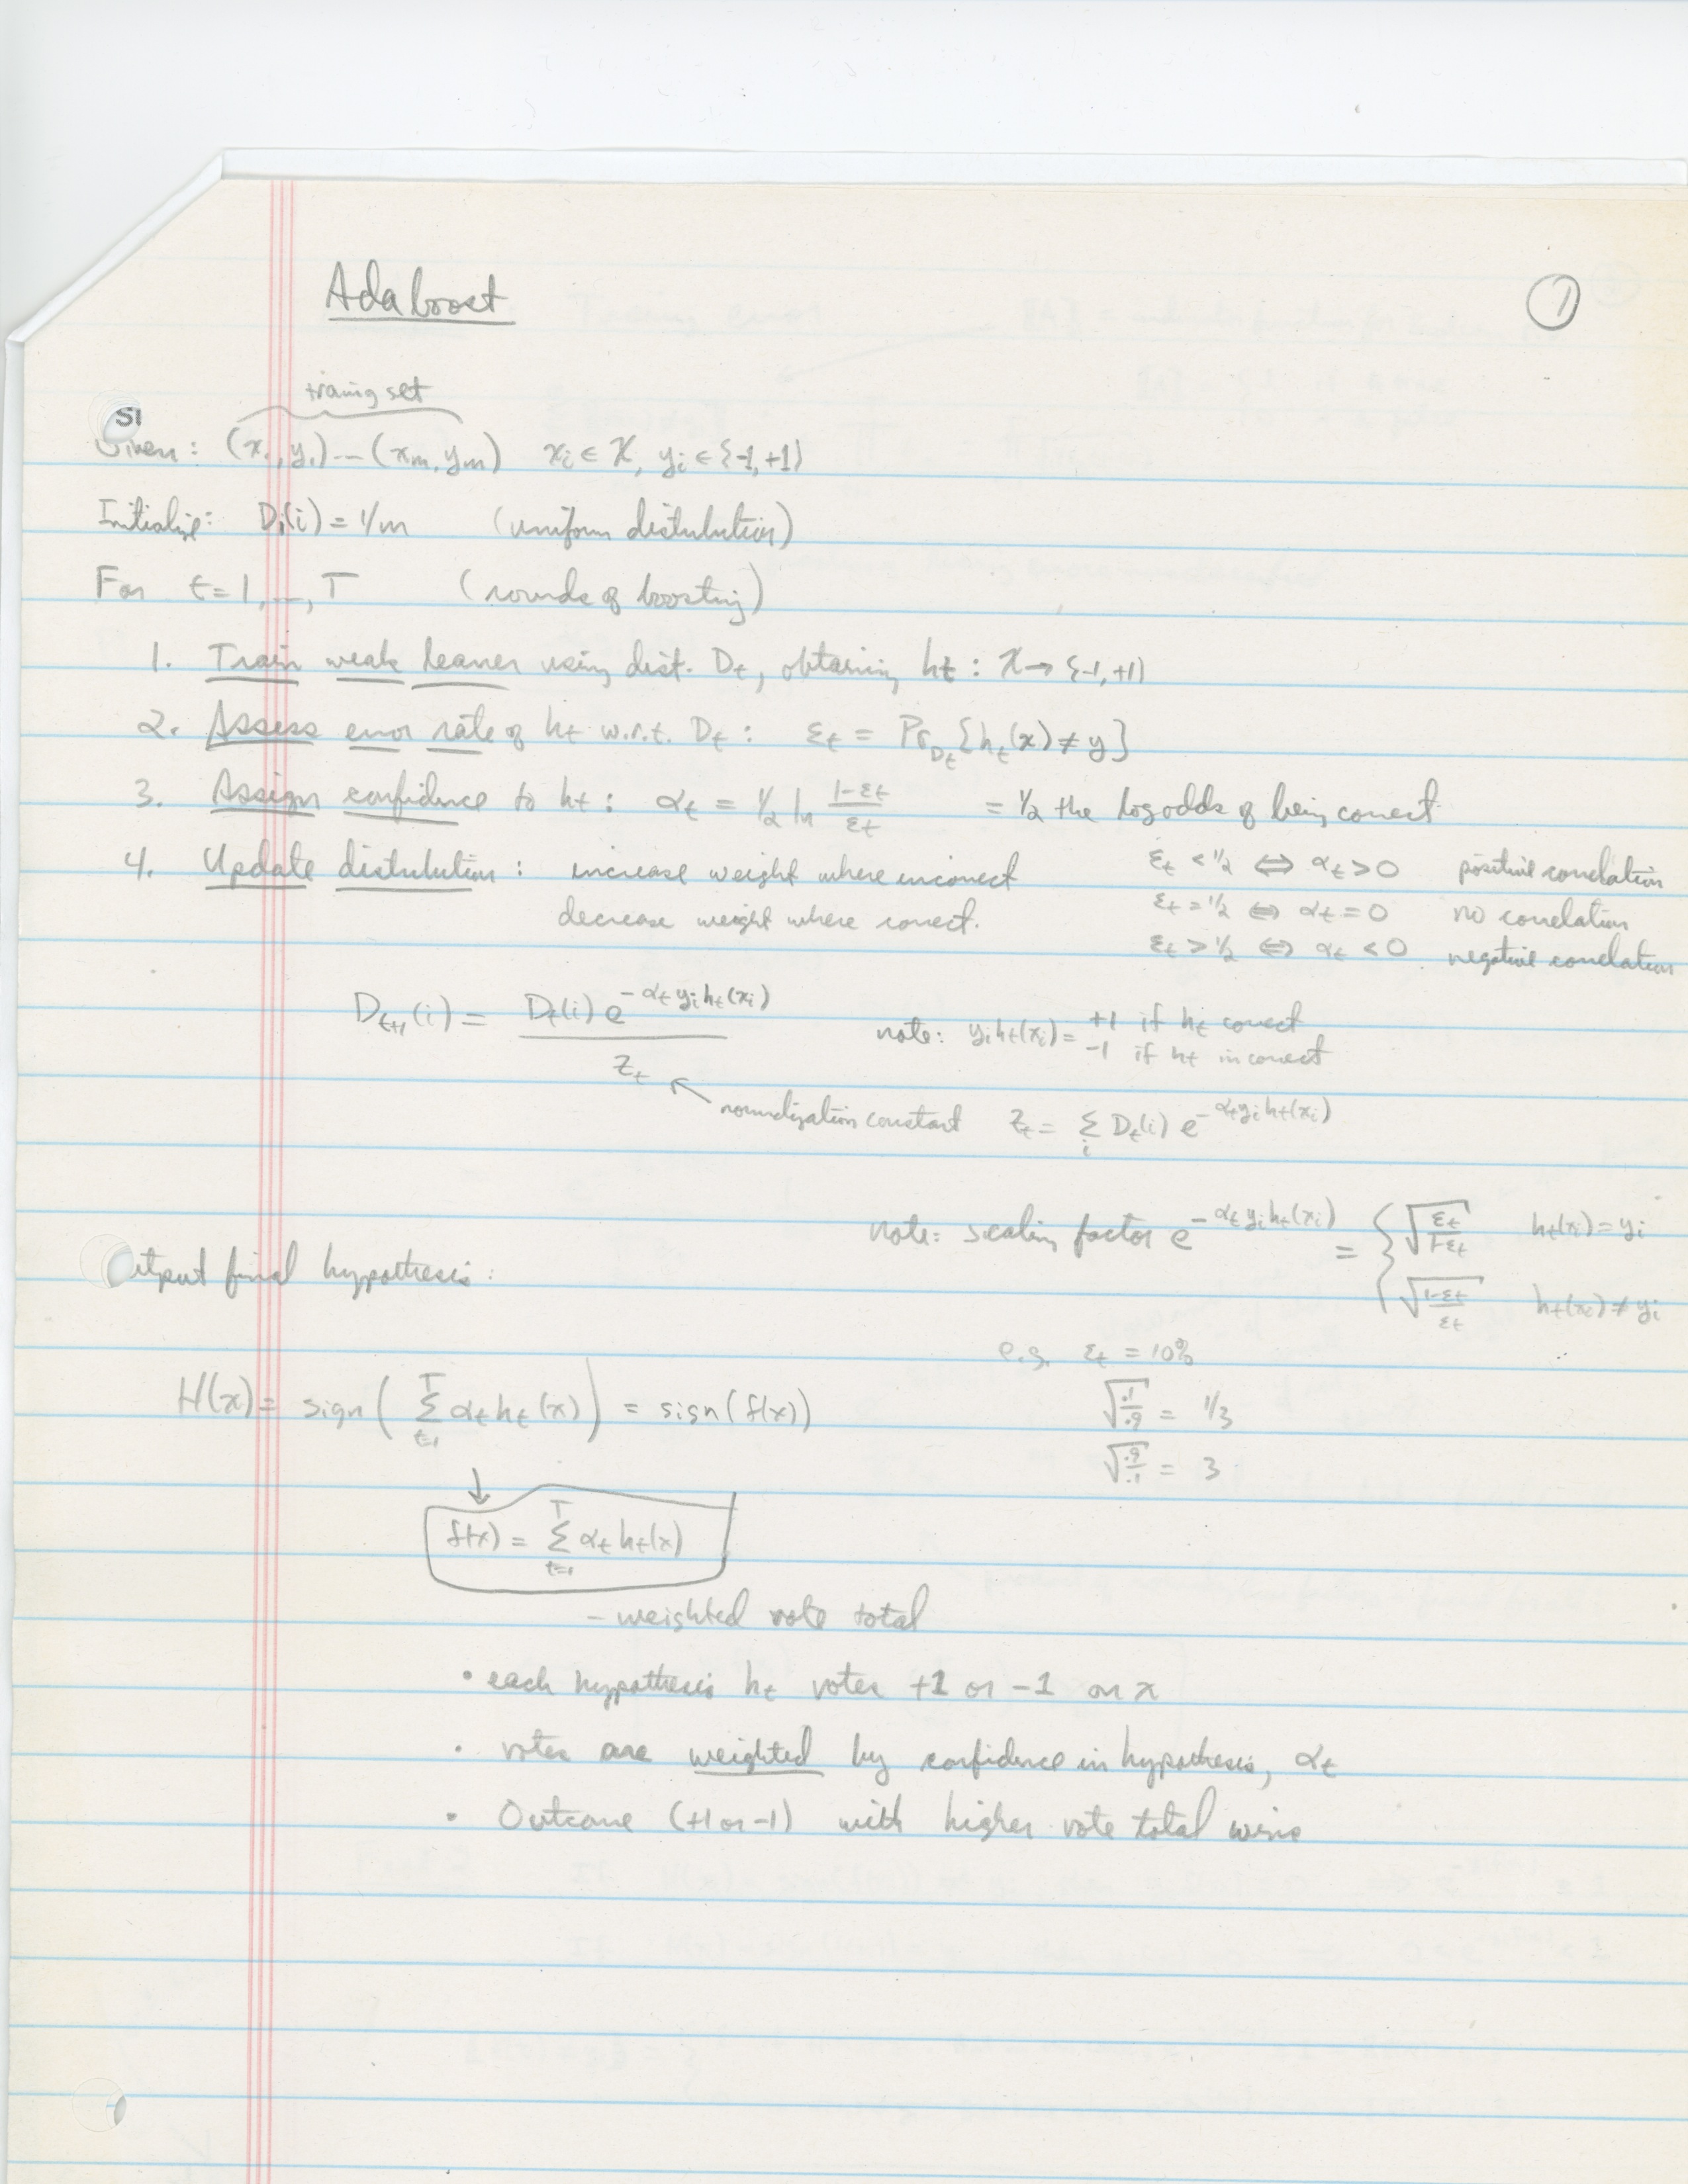 Adaboost
①
training set
Given: (x₁, y₁) --- (xₘ, yₘ) xᵢ ∈ X, yᵢ ∈ {-1, +1}
Initialize: D₁(i) = 1/m (uniform distribution)
For t = 1, ..., T (rounds of boosting)
1. Train weak learner using dist. Dₜ, obtaining hₜ : X → {-1, +1}
2. Assess error rate of hₜ w.r.t. Dₜ : εₜ = Pr_Dₜ {hₜ(x) ≠ y}
3. Assign confidence to hₜ : αₜ = ½ ln (1-εₜ)/εₜ = ½ the log odds of being correct
4. Update distribution : increase weight where incorrect
decrease weight where correct.
εₜ < ½ ⇔ αₜ > 0 positive correlation
εₜ = ½ ⇔ αₜ = 0 no correlation
εₜ > ½ ⇔ αₜ < 0 negative correlation
Dₜ₊₁(i) = Dₜ(i) e^(-αₜ yᵢ hₜ(xᵢ)) / Zₜ
note: yᵢ hₜ(xᵢ) = +1 if hₜ correct
-1 if hₜ incorrect
normalization constant Zₜ = Σᵢ Dₜ(i) e^(-αₜ yᵢ hₜ(xᵢ))
note: scaling factor e^(-αₜ yᵢ hₜ(xᵢ)) = { √(εₜ/(1-εₜ)) hₜ(xᵢ) = yᵢ
√((1-εₜ)/εₜ) hₜ(xᵢ) ≠ yᵢ
e.g. εₜ = 10%
√(.1/.9) = 1/3
√(.9/.1) = 3
Output final hypothesis:
H(x) = sign( Σ_{t=1}^T αₜ hₜ(x) ) = sign(f(x))
f(x) = Σ_{t=1}^T αₜ hₜ(x)
- weighted vote total
• each hypothesis hₜ votes +1 or -1 on x
• votes are weighted by confidence in hypothesis, αₜ
• Outcome (+1 or -1) with higher vote total wins